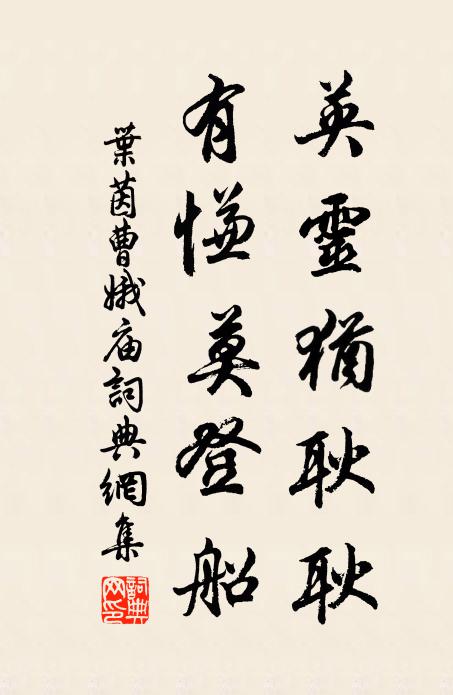 英靈猶耿耿
有慊莫登船
葉茵曹娥庙詞典網集
詞典网印